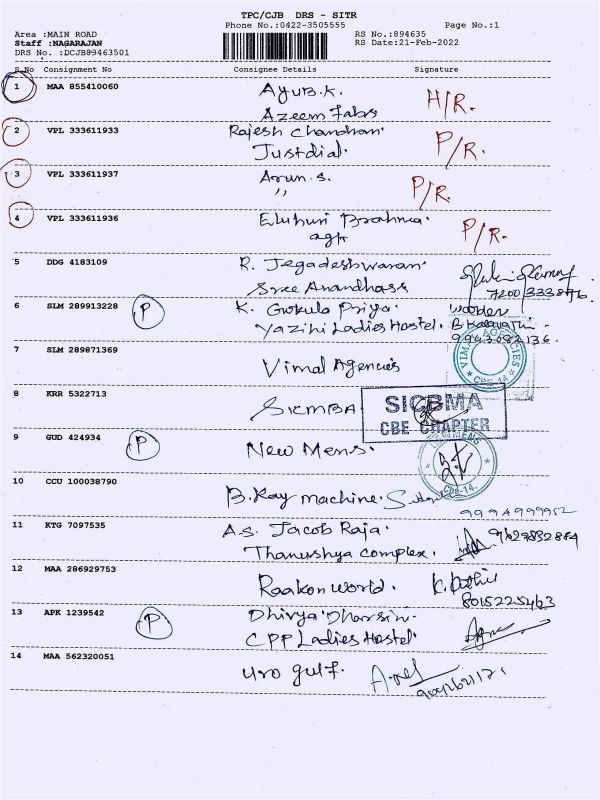 TPC/CJB DRS - SITR
Phone No.:0422-3505555 Page No.:1
Area :MAIN ROAD RS No.:894635
Staff :NAGARAJAN RS Date:21-Feb-2022
DRS No. :DCJB89463501
S.No Consignment No Consignee Details Signature
1 MAA 855410060 Ayub.k. H/R.
Azeem Fabs
2 VPL 333611933 Rajesh P/R.
Justdial.
3 VPL 333611937 Arun.s. P/R.
"
4 VPL 333611936 Eluhuri Brahma. P/R.
5 DDG 4183109 R. Jegadeshwaran.
Sree Anandhass
6 SLM 289913228 P K. Gokula Priya. warden
Yazini Ladies Hostel.
9943082136.
7 SLM 289871369 Vimal Agencies
VIMAL AGENCIES
CBE-14
8 KRR 5322713 SICMBA
SICBMA
CBE CHAPTER
9 GUD 424934 P New Mens.
Cbe-14.
10 CCU 100038790 B. Kay machine.
9994999952
11 KTG 7097535 A.S. Jacob Raja.
Thanushya complex.
12 MAA 286929753 Raakon World.
8015225463
13 APK 1239542 P Dhivya Dharsini.
CPP Ladies Hostel.
14 MAA 562320051 uro gulf.